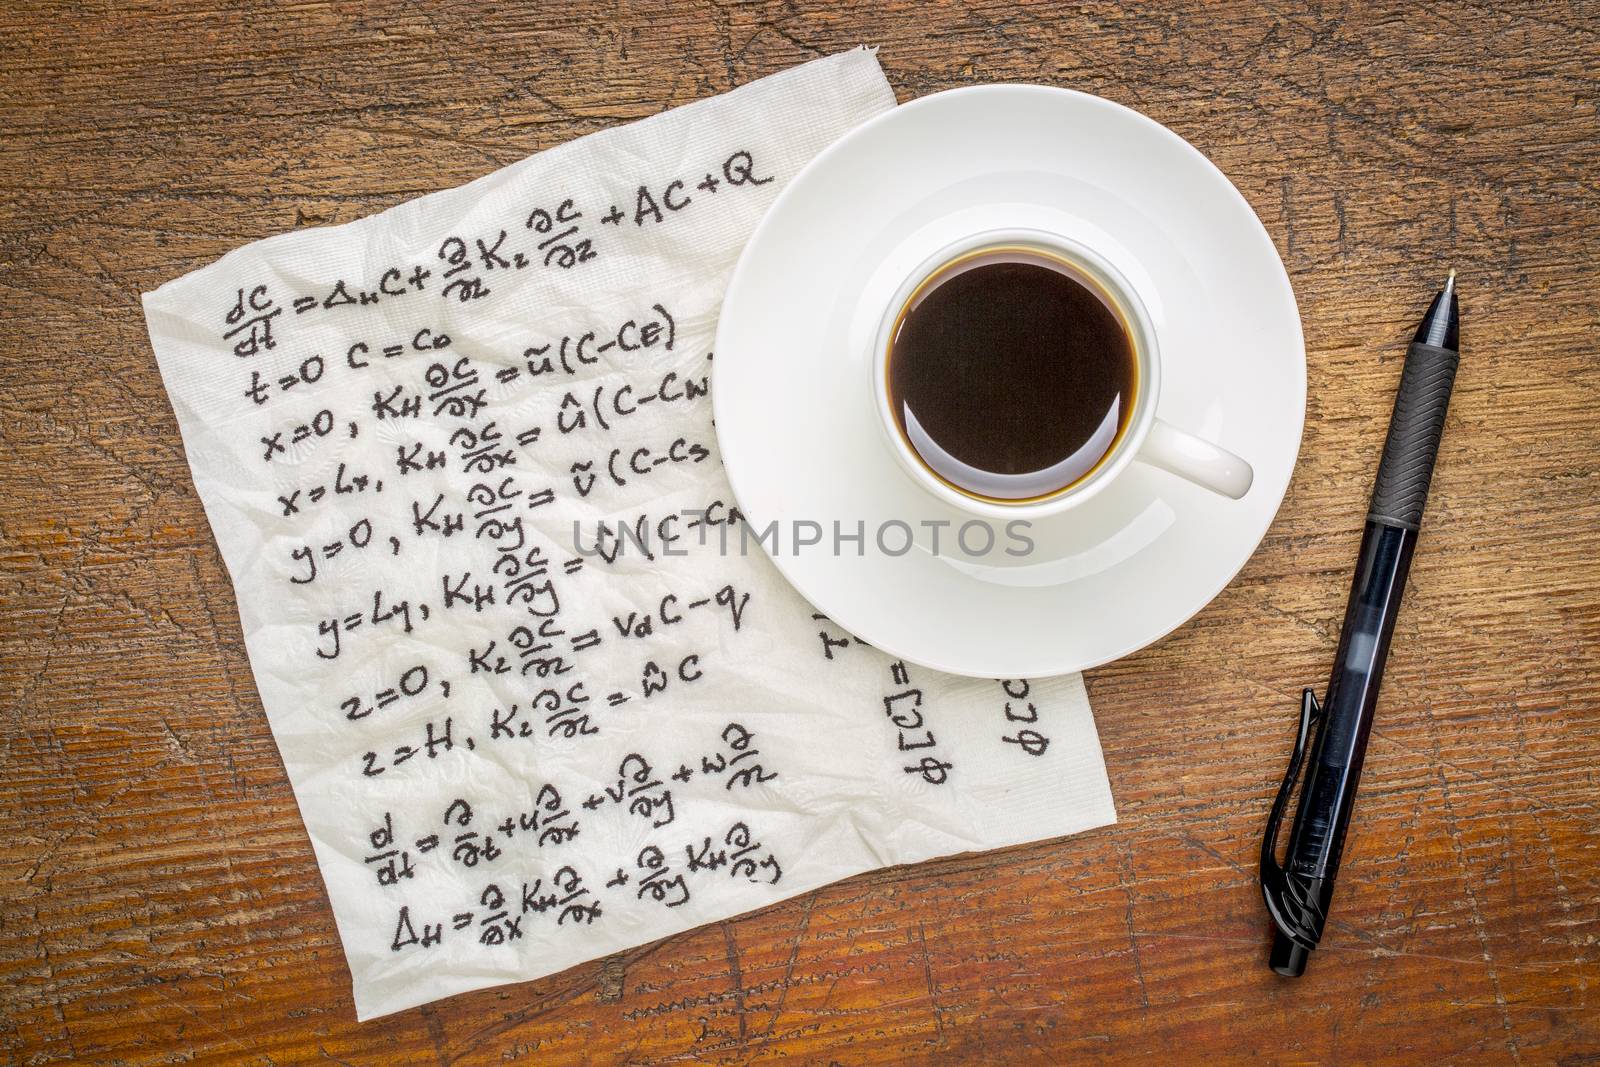 dC/dt = Δ_H C + ∂/∂z K_z ∂C/∂z + AC + Q
t=0 C=C_0
x=0, K_H ∂C/∂x = ũ(C-C_E)
x=L_x, K_H ∂C/∂x = û(C-C_W
y=0, K_H ∂C/∂y = ṽ(C-C_S
y=L_y, K_H ∂C/∂y = v̂(C-C_N
z=0, K_z ∂C/∂z = v_d C - q
z=H, K_z ∂C/∂z = ŵ C
d/dt = ∂/∂t + u ∂/∂x + v ∂/∂y + w ∂/∂z
Δ_H = ∂/∂x K_H ∂/∂x + ∂/∂y K_H ∂/∂y
ϕ[C]=
ϕ[C
UNETIMPHOTOS